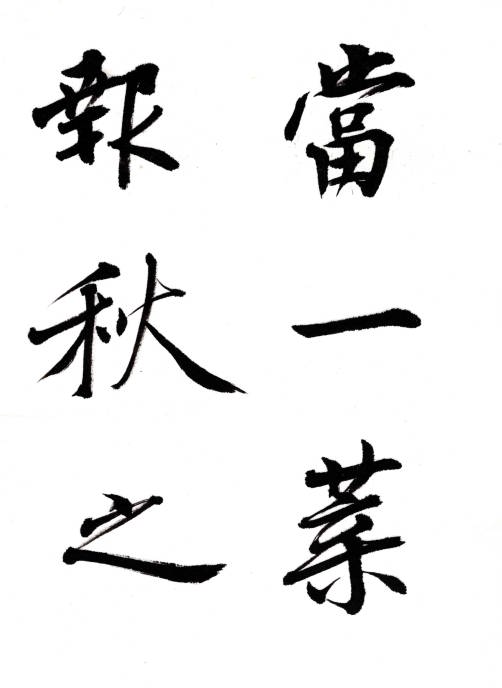 當一葉
報秋之